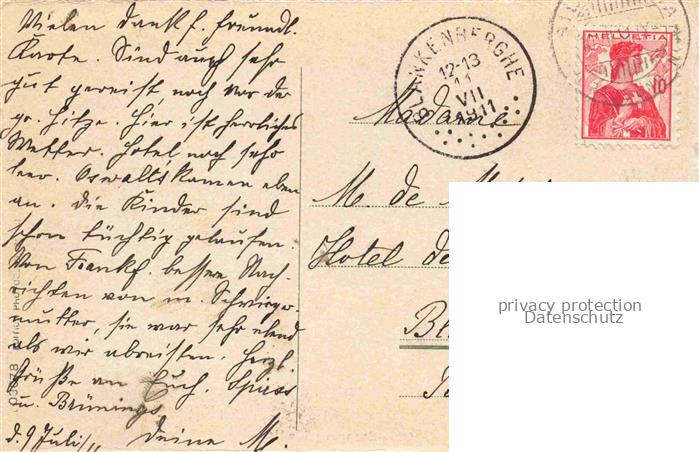 Vielen Dank f. freundl.
Karte. Sind auch sehr
gut gereist, noch vor der
gr. Hitze. Hier ist herrliches
Wetter. Hotel noch sehr
leer. Oswalts kamen eben
an. Die Kinder sind
schon tüchtig gelaufen.
Von Frankf. bessere Nach-
richten von m. Schwieger-
mutter, sie war sehr elend
als wir abreisten. Herzl.
Grüße an Euch, Spiess
u. Brünings.
d. 9 Juli 11 Deine M.
BLANKENBERGHE
12-13
11
VII
1911
HELVETIA
10
Madame
M. de
Hotel de
Bl
privacy protection
Datenschutz